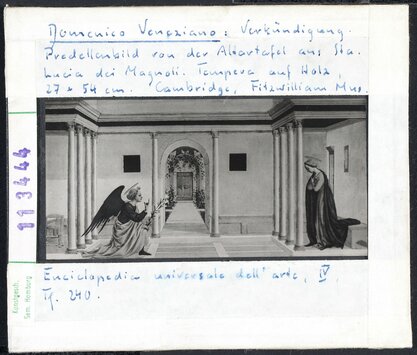 Domenico Veneziano: Verkündigung.
Predellenbild von der Altartafel aus Sta.
Lucia dei Magnoli. Tempera auf Holz,
27 × 54 cm. Cambridge, Fitzwilliam Mus.
113444
Kunstgesch.
Sem. Hamburg
Enciclopedia universale dell'arte, IV,
Tf. 240.